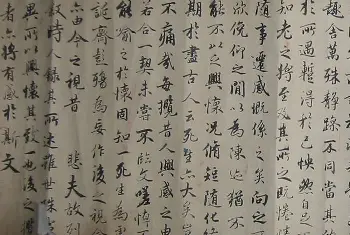 趣舍萬殊靜躁不同當其
於所遇暫得於己怏然自
知老之將至及其所之既惓情
隨事遷感慨係之矣向之
欣俛仰之閒以為陳迹猶不
能不以之興懷況脩短隨化
期於盡古人云死生亦大矣豈
不痛哉每攬昔人興感之由
若合一契未嘗不臨文嗟悼
能喻之於懷固知一死生為
誕齊彭殤為妄作後之視今
亦由今之視昔悲夫故列
敘時人錄其所述雖世殊
異所以興懷其致一也後之攬
者亦將有感於斯文